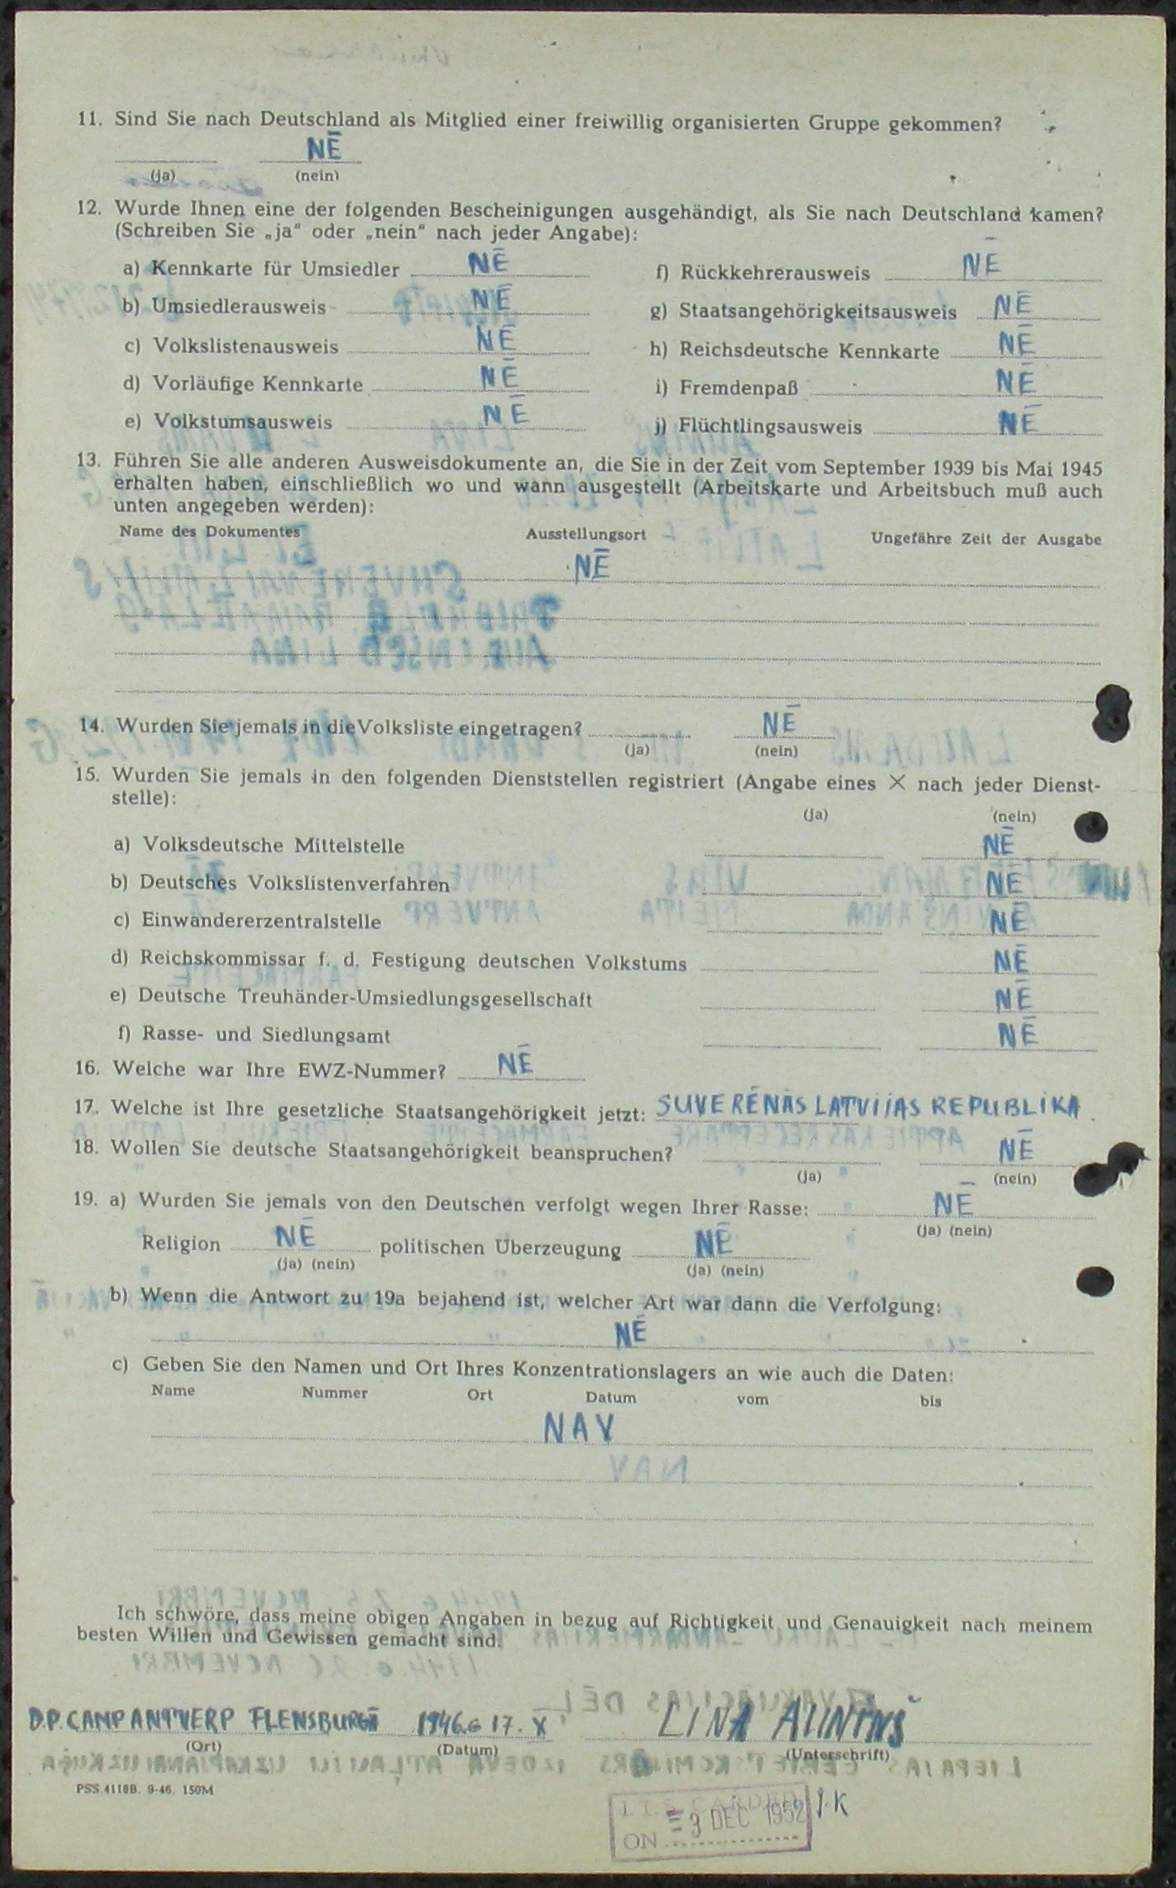 11. Sind Sie nach Deutschland als Mitglied einer freiwillig organisierten Gruppe gekommen?
NĒ
(ja) (nein)
12. Wurde Ihnen eine der folgenden Bescheinigungen ausgehändigt, als Sie nach Deutschland kamen?
(Schreiben Sie „ja" oder „nein" nach jeder Angabe):
a) Kennkarte für Umsiedler NĒ
f) Rückkehrerausweis NĒ
b) Umsiedlerausweis NĒ
g) Staatsangehörigkeitsausweis NĒ
c) Volkslistenausweis NĒ
h) Reichsdeutsche Kennkarte NĒ
d) Vorläufige Kennkarte NĒ
i) Fremdenpaß NĒ
e) Volkstumsausweis NĒ
j) Flüchtlingsausweis NĒ
13. Führen Sie alle anderen Ausweisdokumente an, die Sie in der Zeit vom September 1939 bis Mai 1945
erhalten haben, einschließlich wo und wann ausgestellt (Arbeitskarte und Arbeitsbuch muß auch
unten angegeben werden):
Name des Dokumentes Ausstellungsort Ungefähre Zeit der Ausgabe
NĒ
14. Wurden Sie jemals in die Volksliste eingetragen? NĒ
(ja) (nein)
15. Wurden Sie jemals in den folgenden Dienststellen registriert (Angabe eines × nach jeder Dienst-
stelle):
(ja) (nein)
a) Volksdeutsche Mittelstelle NĒ
b) Deutsches Volkslistenverfahren NĒ
c) Einwandererzentralstelle NĒ
d) Reichskommissar f. d. Festigung deutschen Volkstums NĒ
e) Deutsche Treuhänder-Umsiedlungsgesellschaft NĒ
f) Rasse- und Siedlungsamt NĒ
16. Welche war Ihre EWZ-Nummer? NĒ
17. Welche ist Ihre gesetzliche Staatsangehörigkeit jetzt: SUVERĒNĀS LATVIJAS REPUBLIKA
18. Wollen Sie deutsche Staatsangehörigkeit beanspruchen? NĒ
(ja) (nein)
19. a) Wurden Sie jemals von den Deutschen verfolgt wegen Ihrer Rasse: NĒ
(ja) (nein)
Religion NĒ politischen Überzeugung NĒ
(ja) (nein) (ja) (nein)
b) Wenn die Antwort zu 19a bejahend ist, welcher Art war dann die Verfolgung:
NĒ
c) Geben Sie den Namen und Ort Ihres Konzentrationslagers an wie auch die Daten:
Name Nummer Ort Datum vom bis
NAV
Ich schwöre, dass meine obigen Angaben in bezug auf Richtigkeit und Genauigkeit nach meinem
besten Willen und Gewissen gemacht sind.
D.P. CAMP ANTVERP FLENSBURGĀ 1946.G 17. X LINA AUNIŅŠ
(Ort) (Datum) (Unterschrift)
PSS. 4118B. 9-46. 150M
ON 3 DEC 1952 J.K